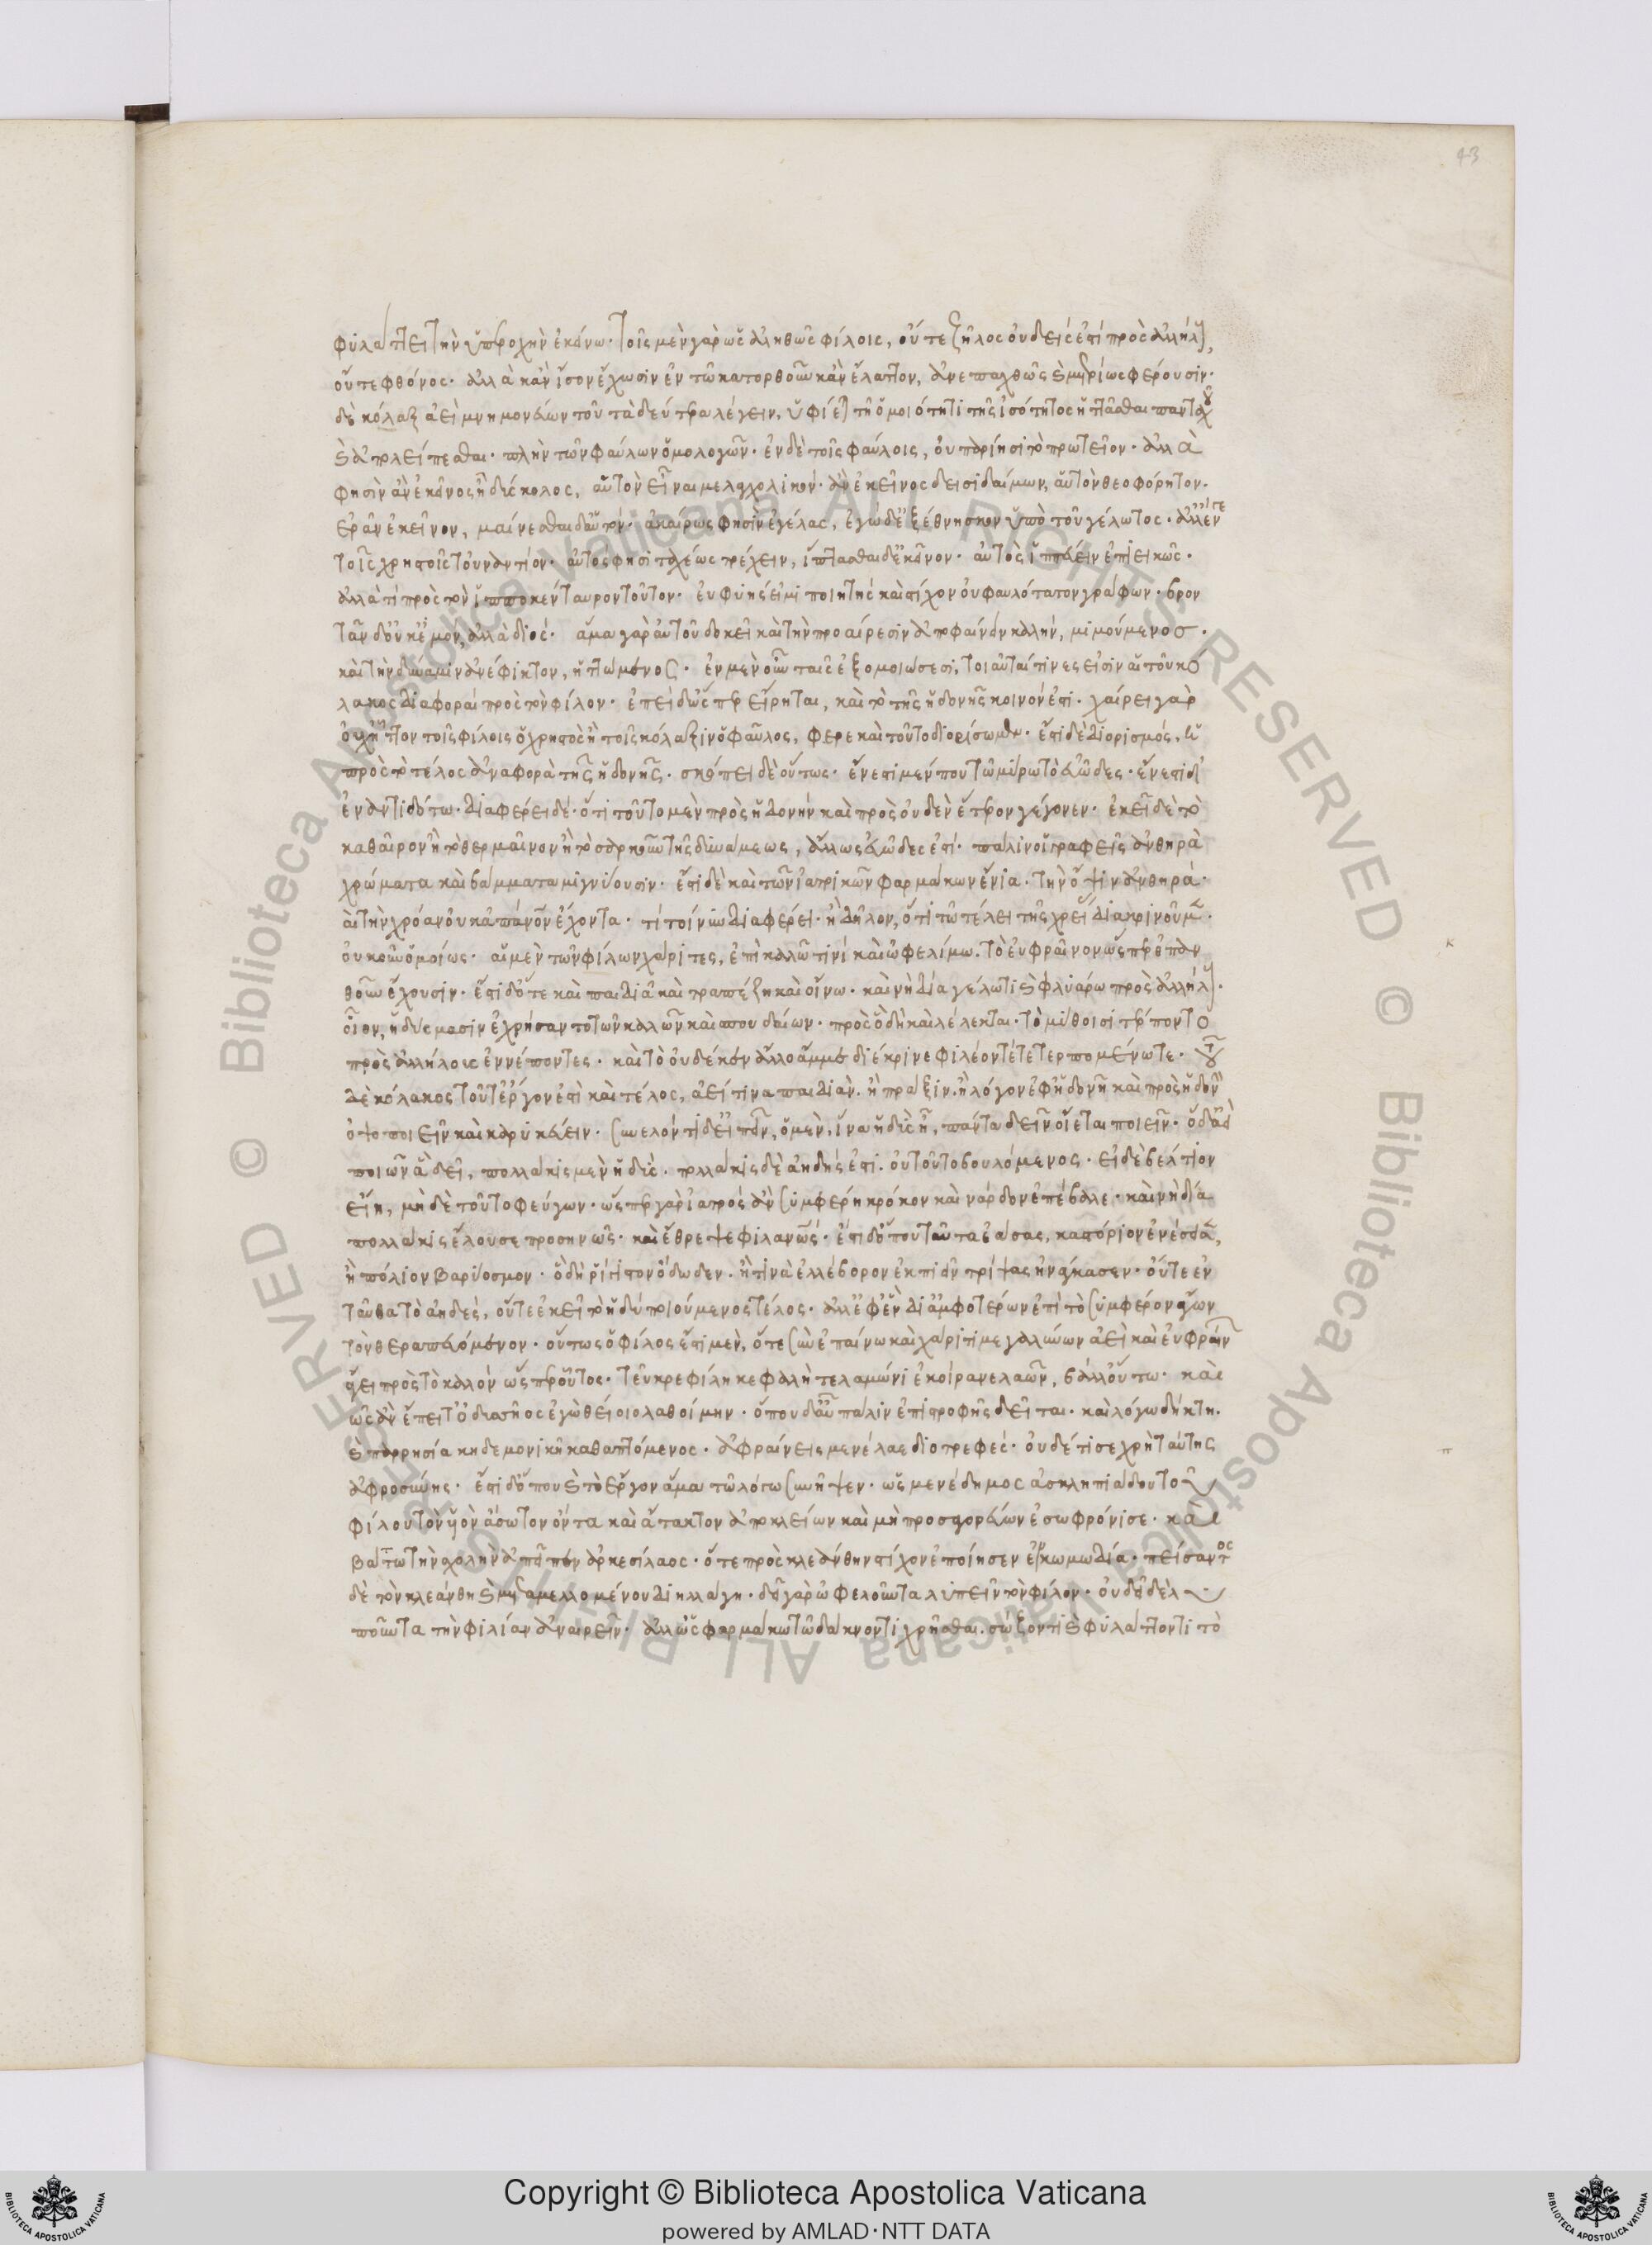 43
φυλάττει τὴν ὑπεροχὴν ἐκείνω· τοῖς μὲν γὰρ ὡς ἀληθῶς φίλοις, οὔτε ζῆλος οὐδείς ἐστι πρὸς ἀλλήλους,
οὔτε φθόνος· ἀλλὰ κἂν ἴσον ἔχωσιν ἐν τῶ κατορθοῦν κἂν ἔλαττον, ἀνεπαχθῶς καὶ μετρίως φέρουσιν·
δὲ κόλαξ ἀεὶ μνημονεύων τοῦ τὰ δεύτερα λέγειν, ὑφίεται τῆ ὁμοιότητι τῆς ἰσότητος ἡττᾶσθαι πανταχοῦ
καὶ ἀπολείπεσθαι· πλὴν τῶν φαύλων ὁμολογῶν· ἐν δὲ τοῖς φαύλοις, οὐ παρίησι τὸ πρωτεῖον· ἀλλὰ
φησὶν ἂν ἐκεῖνος ἦ δύσκολος, αὑτὸν εἶναι μελαγχολικόν· ἂν ἐκεῖνος δεισιδαίμων, αὑτὸν θεοφόρητον·
ἐρᾶν ἐκεῖνον, μαίνεσθαι δ' αὑτόν· ἀκαίρως φησὶν ἐγέλας, ἐγὼ δ' ἐξέθνησκον ὑπὸ τοῦ γέλωτος· ἀλλ' ἔν γε
τοῖς χρηστοῖς τοὐναντίον· αὐτός φησι ταχέως τρέχειν, ἵπτασθαι δ' ἐκεῖνον· αὐτὸς ἱππεύειν ἐπιεικῶς·
ἀλλὰ τί πρὸς τὸν ἱπποκένταυρον τοῦτον· εὐφυής εἰμι ποιητὴς καὶ στίχον οὐ φαυλότατον γράφων· βρον
τᾶν δ' οὐκ ἐμόν, ἀλλὰ διός· ἅμα γὰρ αὐτοῦ δοκεῖ καὶ τὴν προαίρεσιν ἀποφαίνειν καλήν, μιμούμενος·
καὶ τὴν δύναμιν ἀνέφικτον, ἡττώμενος· ἐν μὲν οὖν ταῖς ἐξομοιώσεσι, τοιαῦταί τινες εἰσὶν αἱ τοῦ κό
λακος διαφοραὶ πρὸς τὸν φίλον· ἐπεὶ δ' ὥσπερ εἴρηται, καὶ τὸ τῆς ἡδονῆς κοινόν ἐστι· χαίρει γὰρ
οὐχ ἧττον τοῖς φίλοις ὁ χρηστὸς ἢ τοῖς κόλαξιν ὁ φαῦλος, φέρε καὶ τοῦτο διορίσωμεν· ἔστι δὲ διορισμός, ἡ
πρὸς τὸ τέλος ἀναφορὰ τῆς ἡδονῆς· σκόπει δὲ οὕτως· ἔνεστι μέν που τῶ μύρω τὸ εὐῶδες· ἔνεστι δ'
ἐν ἀντιδότω· διαφέρει δέ· ὅτι τοῦτο μὲν πρὸς ἡδονὴν καὶ πρὸς οὐδὲν ἕτερον γέγονεν· ἐκεῖ δὲ τὸ
καθαῖρον ἢ τὸ θερμαῖνον ἢ τὸ σαρκοῦν τῆς δυνάμεως, ἄλλως εὐῶδες ἐστί· πάλιν οἱ γραφεῖς ἀνθηρὰ
χρώματα καὶ βάμματα μιγνύουσιν· ἔστι δὲ καὶ τῶν ἰατρικῶν φαρμάκων ἔνια· τὴν ὄψιν ἀνθηρά·
καὶ τὴν χρόαν οὐκ ἀπάνθρωπον ἔχοντα· τί τοίνυν διαφέρει· ἢ δῆλον, ὅτι τῶ τέλει τῆς χρείας διακρινοῦμεν·
οὐκοῦν ὁμοίως· αἱ μὲν τῶν φίλων χάριτες, ἐπὶ καλῶ τινὶ καὶ ὠφελίμω· τὸ εὐφραῖνον ὥσπερ ἐπαν
θοῦν ἔχουσιν· ἔστι δ' ὅτε καὶ παιδιᾶ καὶ τραπέζη καὶ οἴνω· καὶ νὴ δία γέλωτι καὶ φλυάρω πρὸς ἀλλήλους·
οἷον, ἡδύσμασιν ἐχρήσαντο τῶν καλῶν καὶ σπουδαίων· πρὸς ὃ δὴ καὶ λέλεκται· τὸ μύθοισι τέρποντο
πρὸς ἀλλήλους ἐννέποντες· καὶ τὸ οὐδέ κεν ἄλλο ἄμμε διέκρινε φιλέοντέ τε τερπομένω τε· τοῦ
δὲ κόλακος τοῦτ' ἔργον ἐστὶ καὶ τέλος, ἀεί τινα παιδιὰν· ἢ πρᾶξιν· ἢ λόγον ἐφ' ἡδονῆ καὶ πρὸς ἡδονὴν
ὀψοποιεῖν καὶ καρυκεύειν· συνελόντι δ' εἰπεῖν, ὁ μὲν, ἵνα ἡδὺς ἦ, πάντα δεῖν οἴεται ποιεῖν· ὁ δ' ἀεὶ
ποιῶν ἃ δεῖ, πολλάκις μὲν ἡδὺς· πολλάκις δὲ ἀηδής ἐστι· οὐ τοῦτο βουλόμενος· εἰ δὲ βέλτιον
εἴη, μὴ δὲ τοῦτο φεύγων· ὥσπερ γὰρ ἰατρὸς ἂν συμφέρη κρόκον καὶ νάρδον ἐπέβαλε· καὶ νὴ δία
πολλάκις ἔλουσε προσηνῶς· καὶ ἔθρεψε φιλανθρώπως· ἔστι δ' ὅπου ταῦτα ἐάσας, καστόριον ἐνέσταξεν,
ἢ πόλιον βαρύοσμον· ὃ δὴ ῥίγιστον ὄδωδεν· ἤ τινα ἐλλέβορον ἐκπιεῖν τρίψας ἠνάγκασεν· οὔτε ἐν
ταῦθα τὸ ἀηδές, οὔτε ἐκεῖ τὸ ἡδὺ ποιούμενος τέλος· ἀλλ' ἐφ' ἓν δι' ἀμφοτέρων ἐπὶ τὸ συμφέρον ἄγων
τὸν θεραπευόμενον· οὕτως ὁ φίλος ἔστι μὲν, ὅτε σὺν ἐπαίνω καὶ χάριτι μεγαλύνων ἀεὶ καὶ εὐφραίνων
ἄγει πρὸς τὸ καλὸν ὥσπερ οὗτος· τεῦκρε φίλη κεφαλὴ τελαμώνιε κοίρανε λαῶν, βάλλ' οὕτω· καὶ
πῶς ἂν ἔπειτ' ὀδυσῆος ἐγὼ θείοιο λαθοίμην· ὅπου δ' αὖ πάλιν ἐπιστροφῆς δεῖται· καὶ λόγω δήκτη·
καὶ παρρησία κηδεμονικῆ καθαπτόμενος· ἀφραίνεις μενέλαε διοτρεφές· οὐδέ τί σε χρὴ ταύτης
ἀφροσύνης· ἔστι δ' ὅπου καὶ τὸ ἔργον ἅμα τῶ λόγω συνῆψεν· ὡς μενέδημος ἀσκληπιάδου τοῦ
φίλου τὸν υἱὸν ἄσωτον ὄντα καὶ ἄτακτον ἀποκλείων καὶ μὴ προσαγορεύων ἐσωφρόνισε· καὶ
βάττω τὴν σχολὴν ἀπεῖπεν ἀρκεσίλαος· ὅτε πρὸς κλεάνθην στίχον ἐποίησεν ἐν κωμωδία· πείσαντος
δὲ τὸν κλεάνθη καὶ μεταμελλομένου διηλλάγη· δεῖ γὰρ ὠφελοῦντα λυπεῖν τὸν φίλον· οὐ δεῖ δὲ λυ
ποῦντα τὴν φιλίαν ἀναιρεῖν· ἀλλ' ὡς φαρμάκω τῶ δάκνοντι χρῆσθαι· σώζοντι καὶ φυλάττοντι τὸ
© Biblioteca Apostolica Vaticana ALL RIGHTS RESERVED © Biblioteca Apostolica Vaticana ALL RIGHTS RESERVED
Copyright © Biblioteca Apostolica Vaticana
powered by AMLAD·NTT DATA
BIBLIOTECA APOSTOLICA VATICANA
BIBLIOTECA APOSTOLICA VATICANA